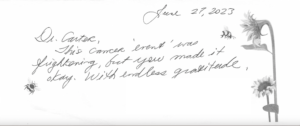 June 27, 2023
Dr. Carter,
This cancer 'event' was
frightening, but you made it
okay. With endless gratitude,